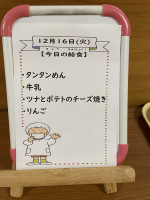 12月16日(火)
【今日の給食】
・タンタンめん
・牛乳
・ツナとポテトのチーズ焼き
・りんご